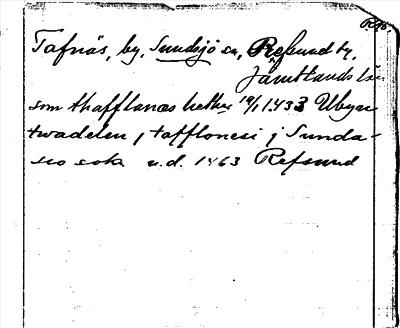 R.76.
Tafnäs, by, Sundsjö sn, Refsund tg,
Jämtlands län.
som thafflanæs hether 19/1 1433 Utryn
twadelen j tafflonesi j Sunda-
sio sokn u.d. 1463 Refsund